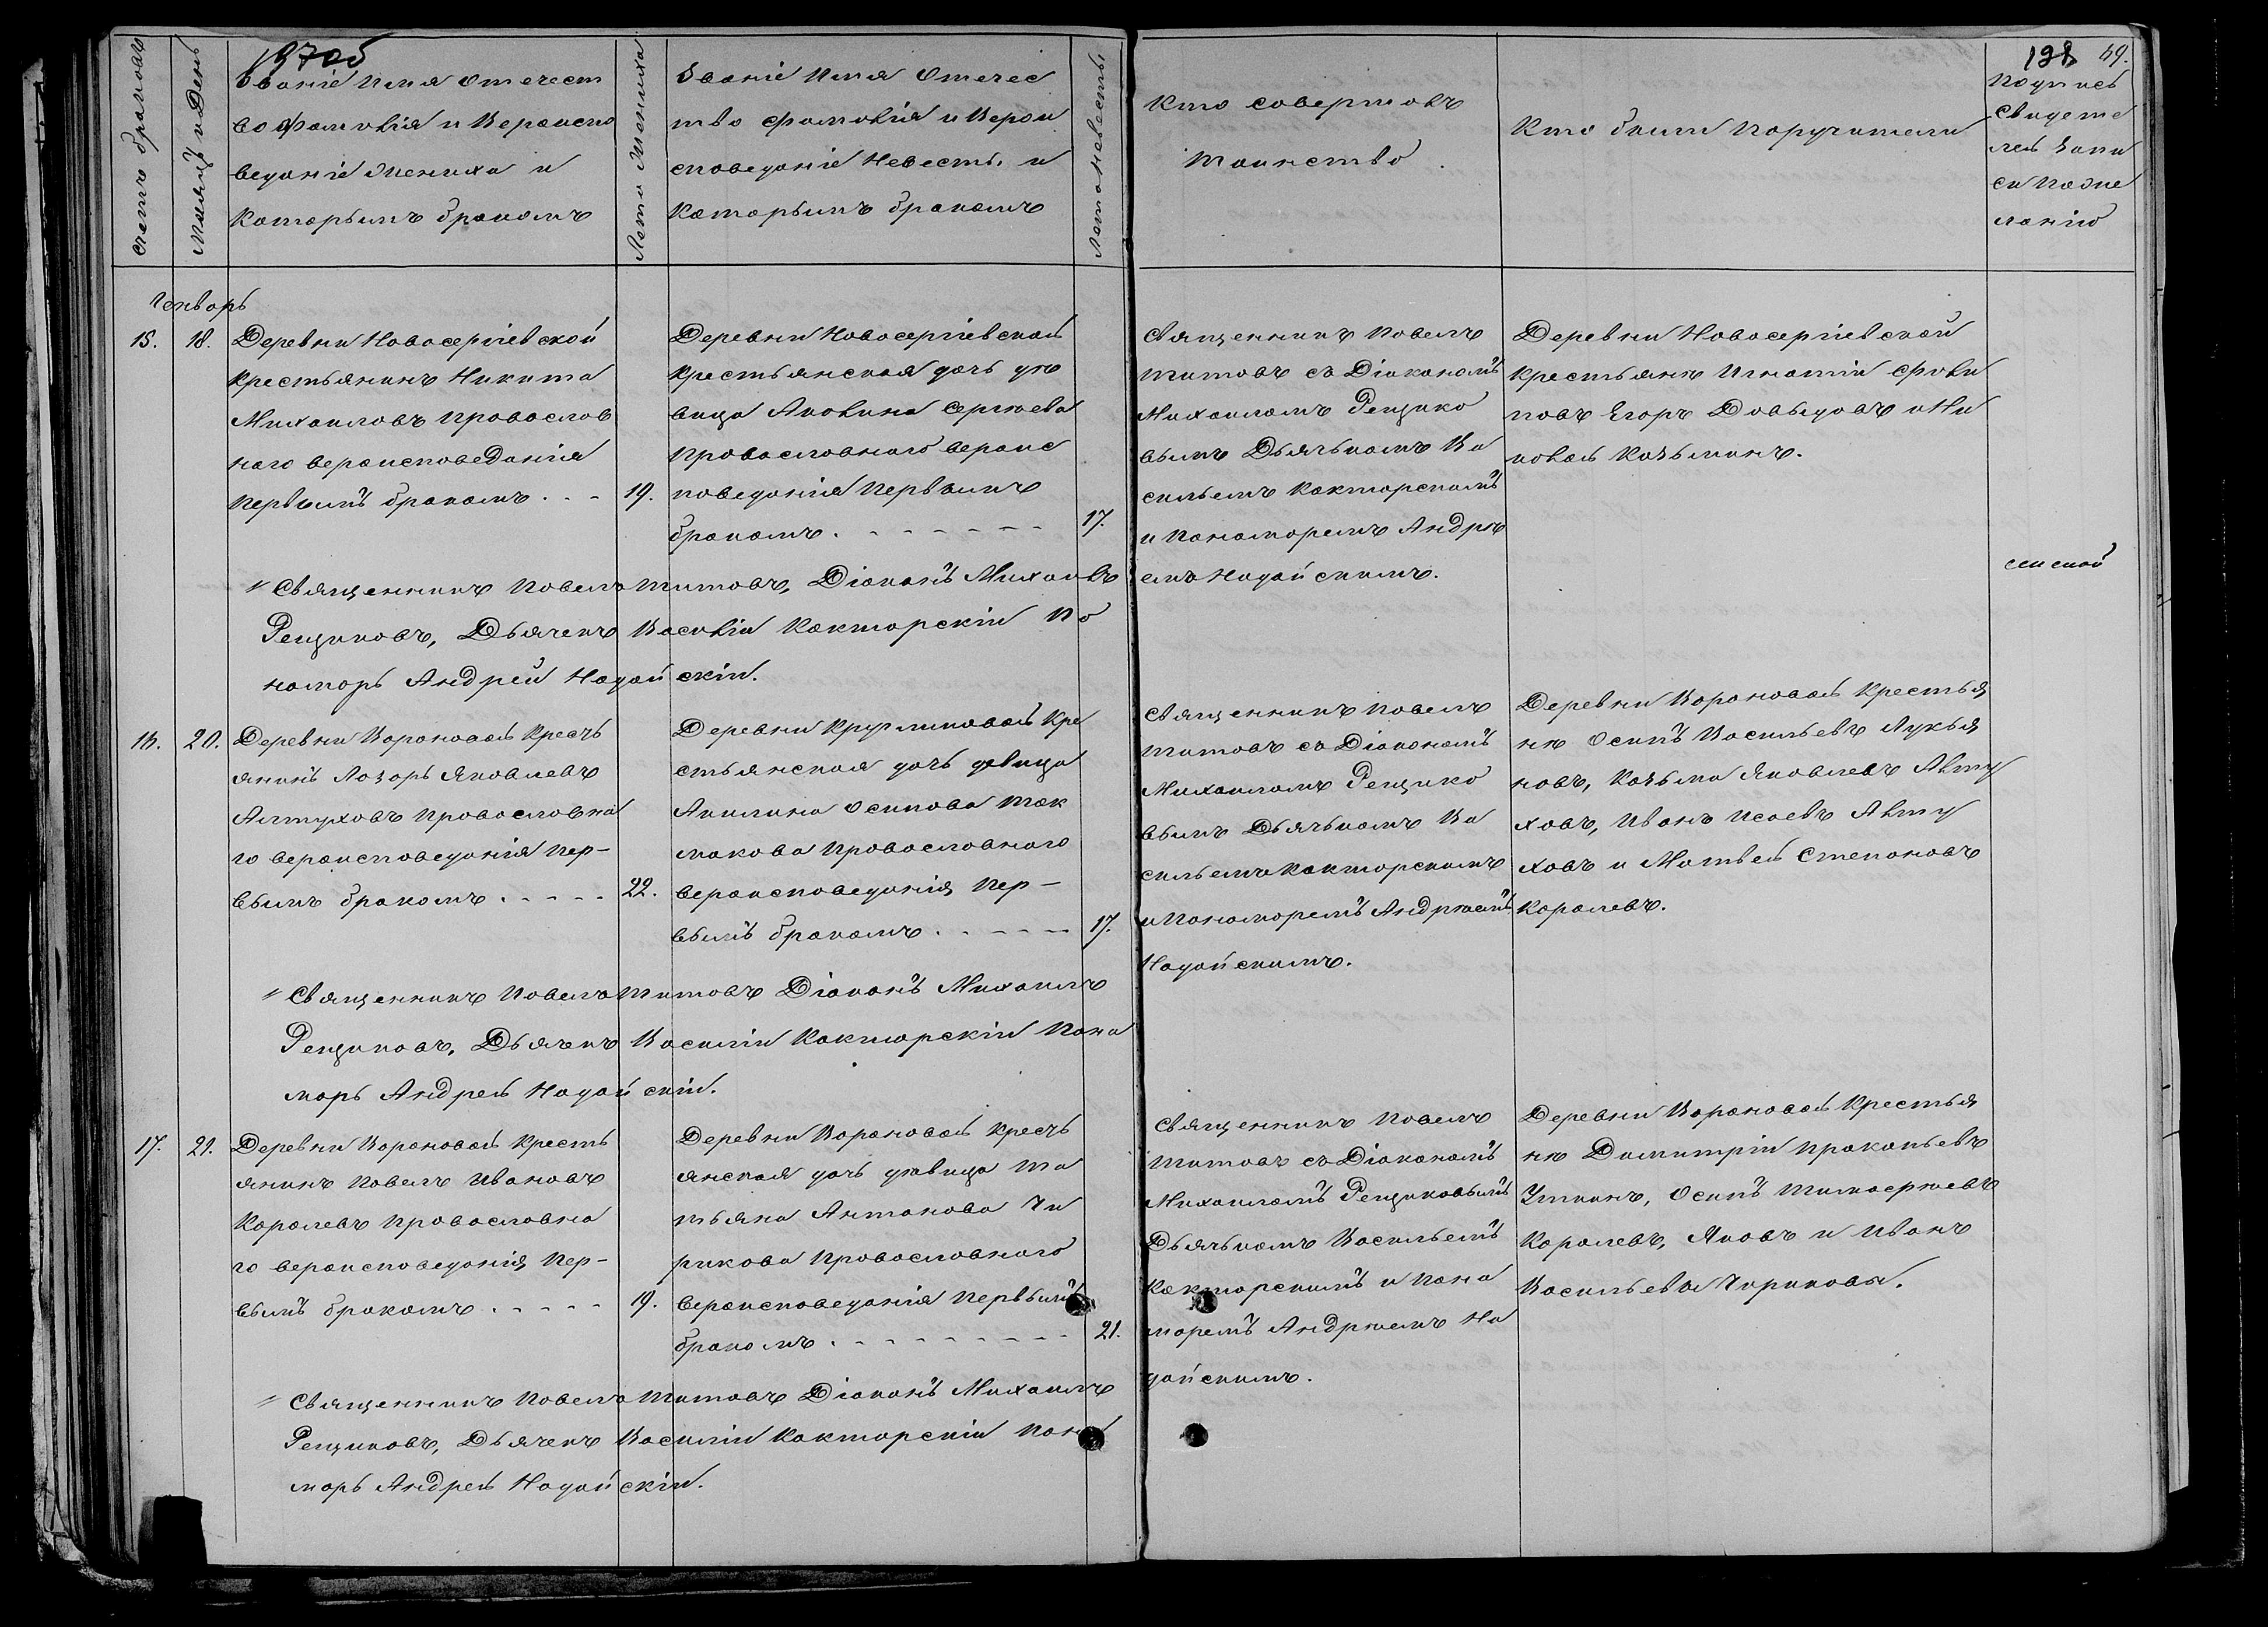 1970б
128 69.
Счетъ браковъ
Месяцъ и День
Званіе Имя Отечест
во Фамилія и Вероиспо
веданіе Жениха и
Которымъ бракомъ
Лета Жениха
Званіе Имя Отечес
тво Фамилія и Верои
споведаніе Невесты и
Которымъ бракомъ
Лета Невесты
Кто совершалъ
Таинство.
Кто были Поручители
Подпись
Свидете
лей Запи
си По же
ланію
Генварь
15. 18.
Деревни Новосергіевской
Крестьянинъ Никита
Михаиловъ Православ
наго вероисповеданія
Первымъ бракомъ . . - 19.
Деревни Новосергіевской
Крестьянская дочь дѣ
вица Акилина Сергѣева
Православнаго вероис
поведанія Первымъ
бракомъ. - - - - - - 17.
Священникъ Павелъ
Титовъ съ Діакономъ
Михаиломъ Рещико
вымъ Дьячькомъ Ва
сильемъ Какторскимъ
и Панаморемъ Андрѣ
емъ Надайскимъ.
Деревни Новосергіевской
Крестьянѣ Игнатій Фили
повъ Егоръ Давыдовъ и Ни
колай Козьминъ.
Священникъ Павелъ Титовъ, Діаконъ Михаилъ
Рещиковъ, Дьячекъ Василій Какторскій По
наморь Андрей Надайскій.
16. 20.
Деревни Вороновой Кресть
янинъ Лазарь Яковлевъ
Алтуховъ Православна
го вероисповеданія Пер-
вымъ бракомъ . - - - - 22.
Деревни Кругликовой Кре
стьянская дочь девица
Акилина Осипова Ток
макова Православнаго
вероисповеданія Пер-
вымъ бракомъ . - - - - 17.
Священникъ Павелъ
Титовъ съ Діакономъ
Михаиломъ Рещико
вымъ Дьячькомъ Ва
сильемъ Какторскимъ
и Панаморемъ Андрѣемъ
Надайскимъ.
Деревни Вороновой Крестья
нѣ Осипъ Васильевъ Лукья
новъ, Козьма Яковлевъ Алту
ховъ, Иванъ Исаевъ Алту
ховъ и Матвей Степановъ
Королевъ.
Священникъ Павелъ Титовъ Діаконъ Михаилъ
Рещиковъ, Дьячекъ Василій Какторскій Пона
морь Андрей Надайскій.
17. 21.
Деревни Вороновой Кресть
янинъ Павелъ Ивановъ
Королевъ Православна
го вероисповеданія Пер-
вымъ бракомъ . - - - - 19.
Деревни Вороновой Кресть
янская дочь дѣвица Та
тьяна Антонова Чи
рикова Православнаго
вероисповеданія Первымъ
бракомъ . - - - - - - - - 21.
Священникъ Павелъ
Титовъ съ Діакономъ
Михаиломъ Рещиковымъ
Дьячькомъ Васильемъ
Какторскимъ и Пана
моремъ Андрѣемъ На
дайскимъ.
Деревни Вороновой Крестья
нѣ Димитрій Прокопьевъ
Уткинъ, Осипъ Тимоѳѣевъ
Королевъ, Яковъ и Иванъ
Васильевы Чириковы.
Священникъ Павелъ Титовъ Діаконъ Михаилъ
Рещиковъ, Дьячекъ Василій Какторскій Пона
морь Андрей Надайскій.